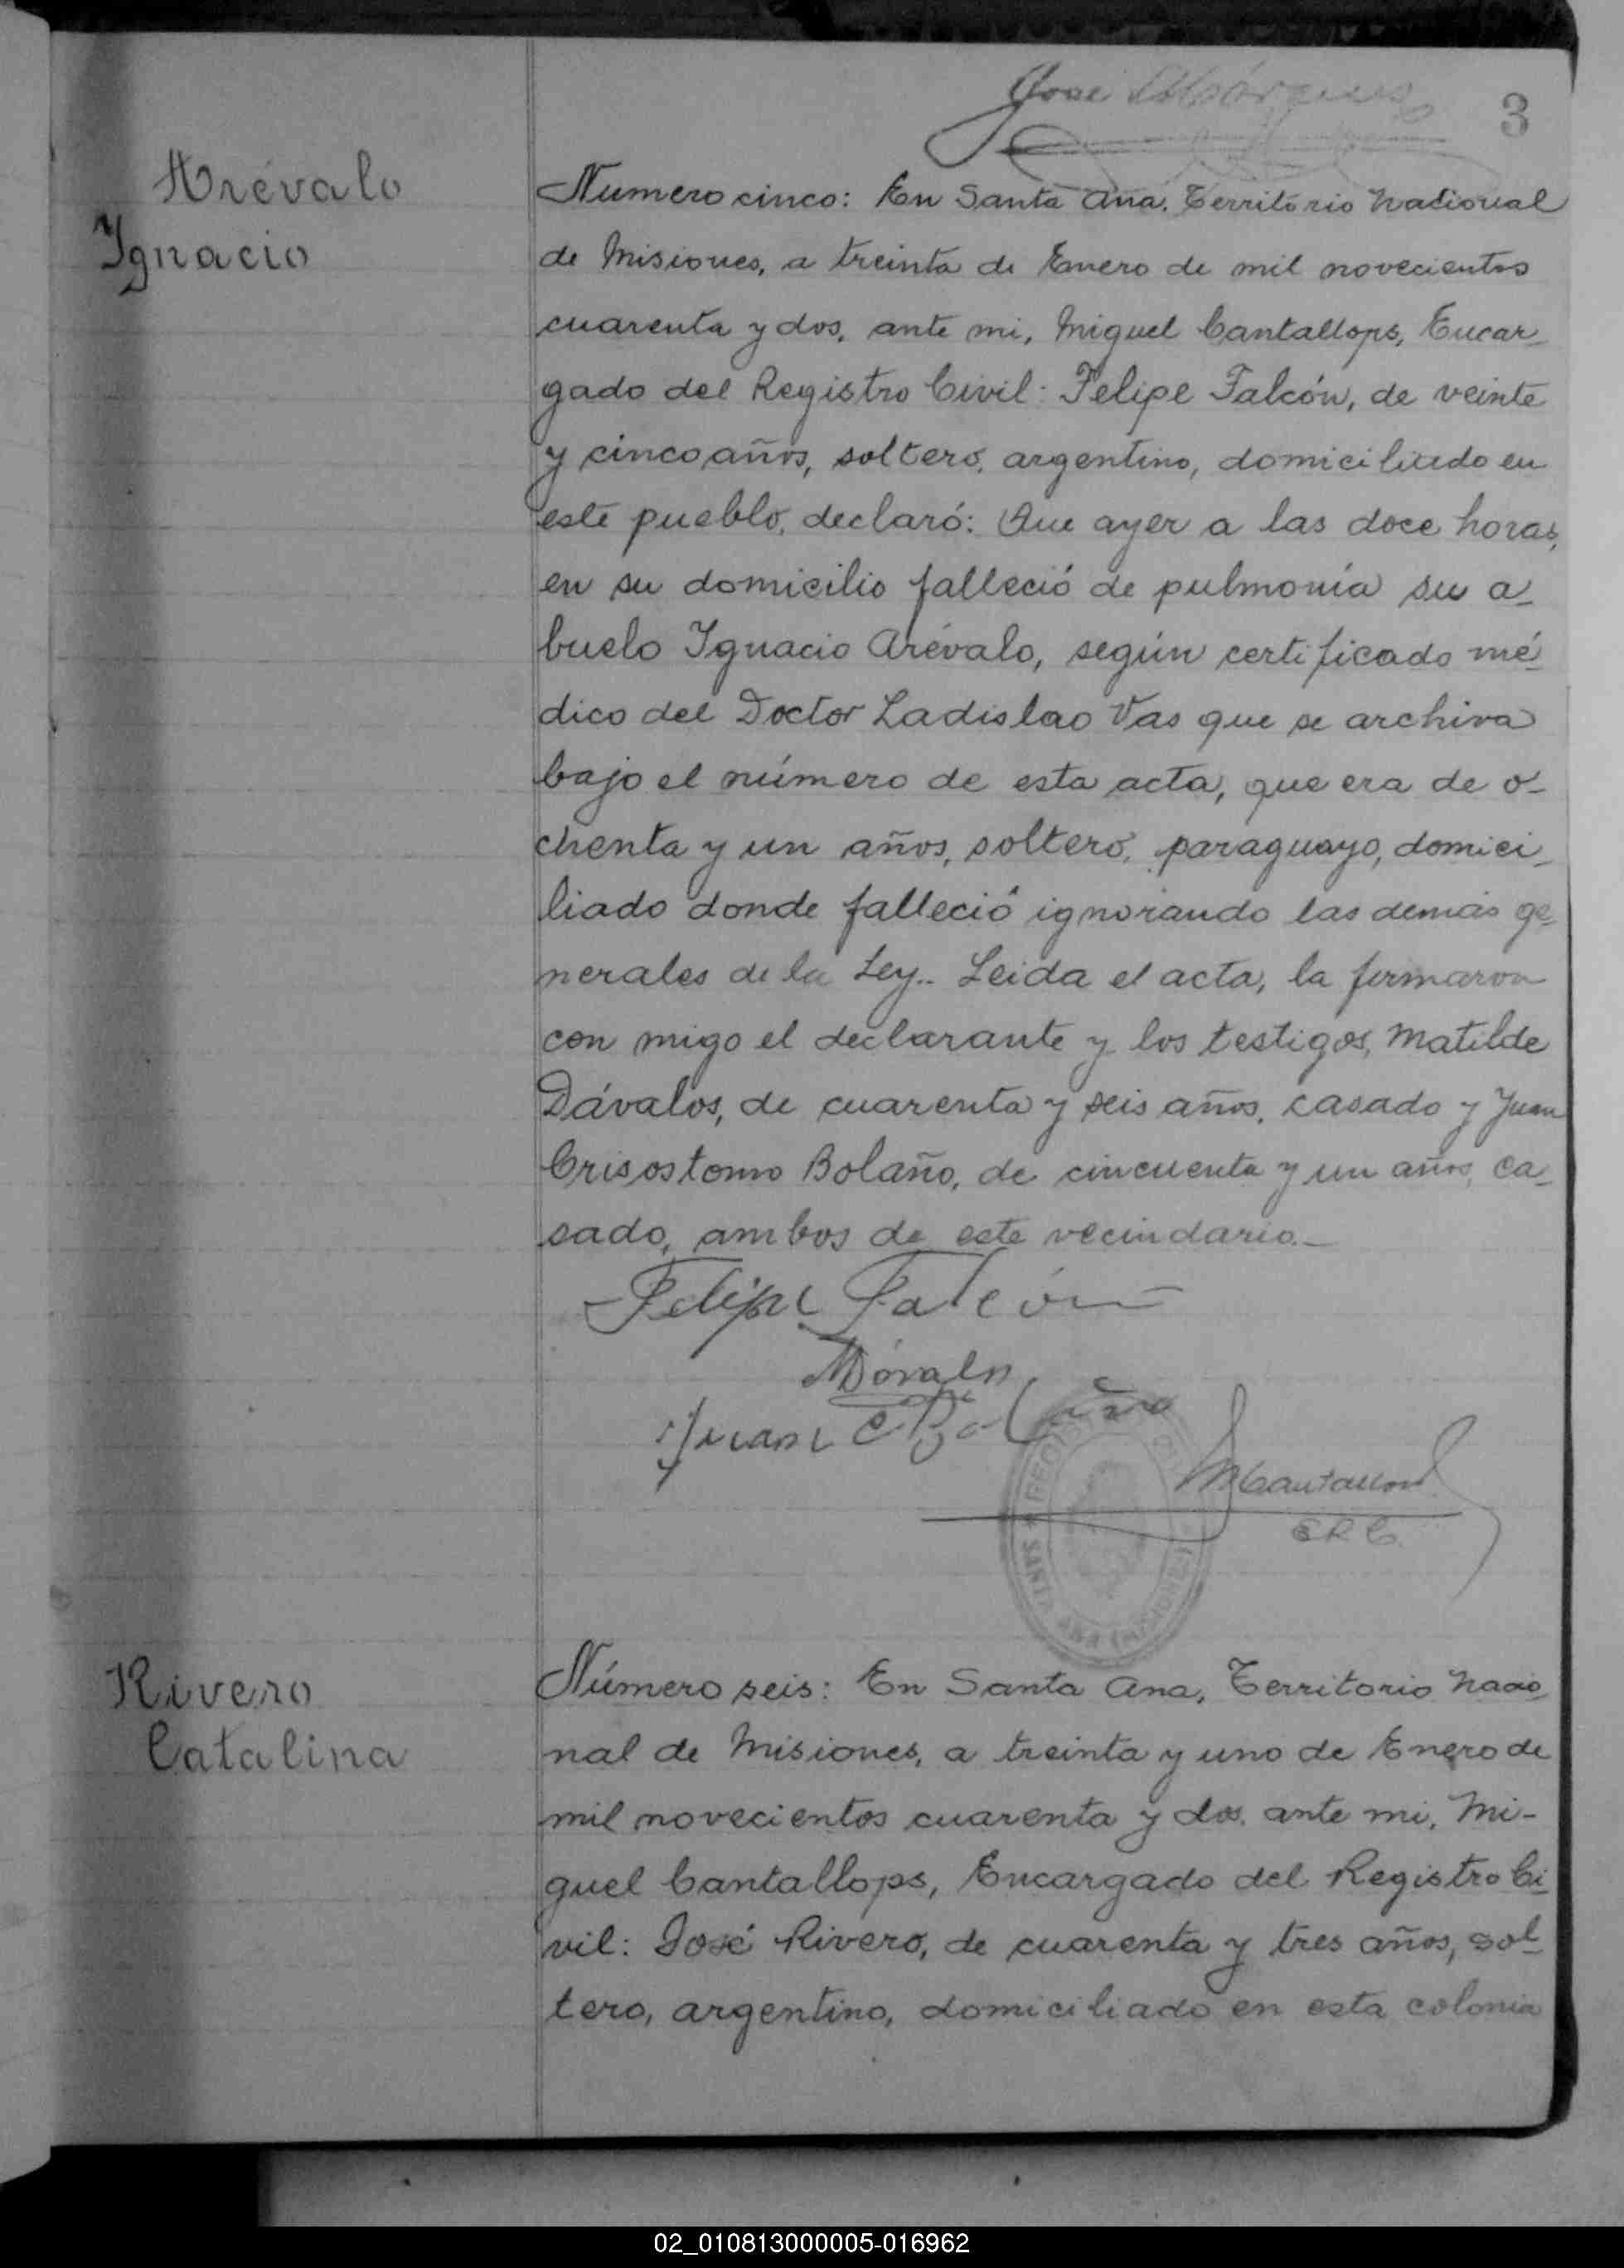 Jose Márquez
3
Arévalo
Ignacio
Numero cinco: En Santa Ana, Territorio Nacional
de Misiones, a treinta de Enero de mil novecientos
cuarenta y dos, ante mi, Miguel Cantallops, Encar-
gado del Registro Civil: Felipe Falcón, de veinte
y cinco años, soltero, argentino, domiciliado en
este pueblo, declaró: Que ayer a las doce horas,
en su domicilio falleció de pulmonía su a-
buelo Ignacio Arévalo, según certificado mé-
dico del Doctor Ladislao Vas que se archiva
bajo el número de esta acta, que era de o-
chenta y un años, soltero, paraguayo, domici-
liado donde falleció ignorando las demás ge-
nerales de la Ley.. Leida el acta, la firmaron
con migo el declarante y los testigos, Matilde
Dávalos, de cuarenta y seis años, casado y Juan
Crisostomo Bolaño, de cincuenta y un años, ca-
sado, ambos de este vecindario.-
Felipe Falcón
MDávalos
Juan C Bolaño
MCantallops
E.R.C.
SANTA ANA (MISIONES)
Rivero
Catalina
Número seis: En Santa Ana, Territorio Nacio-
nal de Misiones, a treinta y uno de Enero de
mil novecientos cuarenta y dos, ante mi, Mi-
guel Cantallops, Encargado del Registro Ci-
vil: José Rivero, de cuarenta y tres años, sol-
tero, argentino, domiciliado en esta colonia
02_010813000005-016962